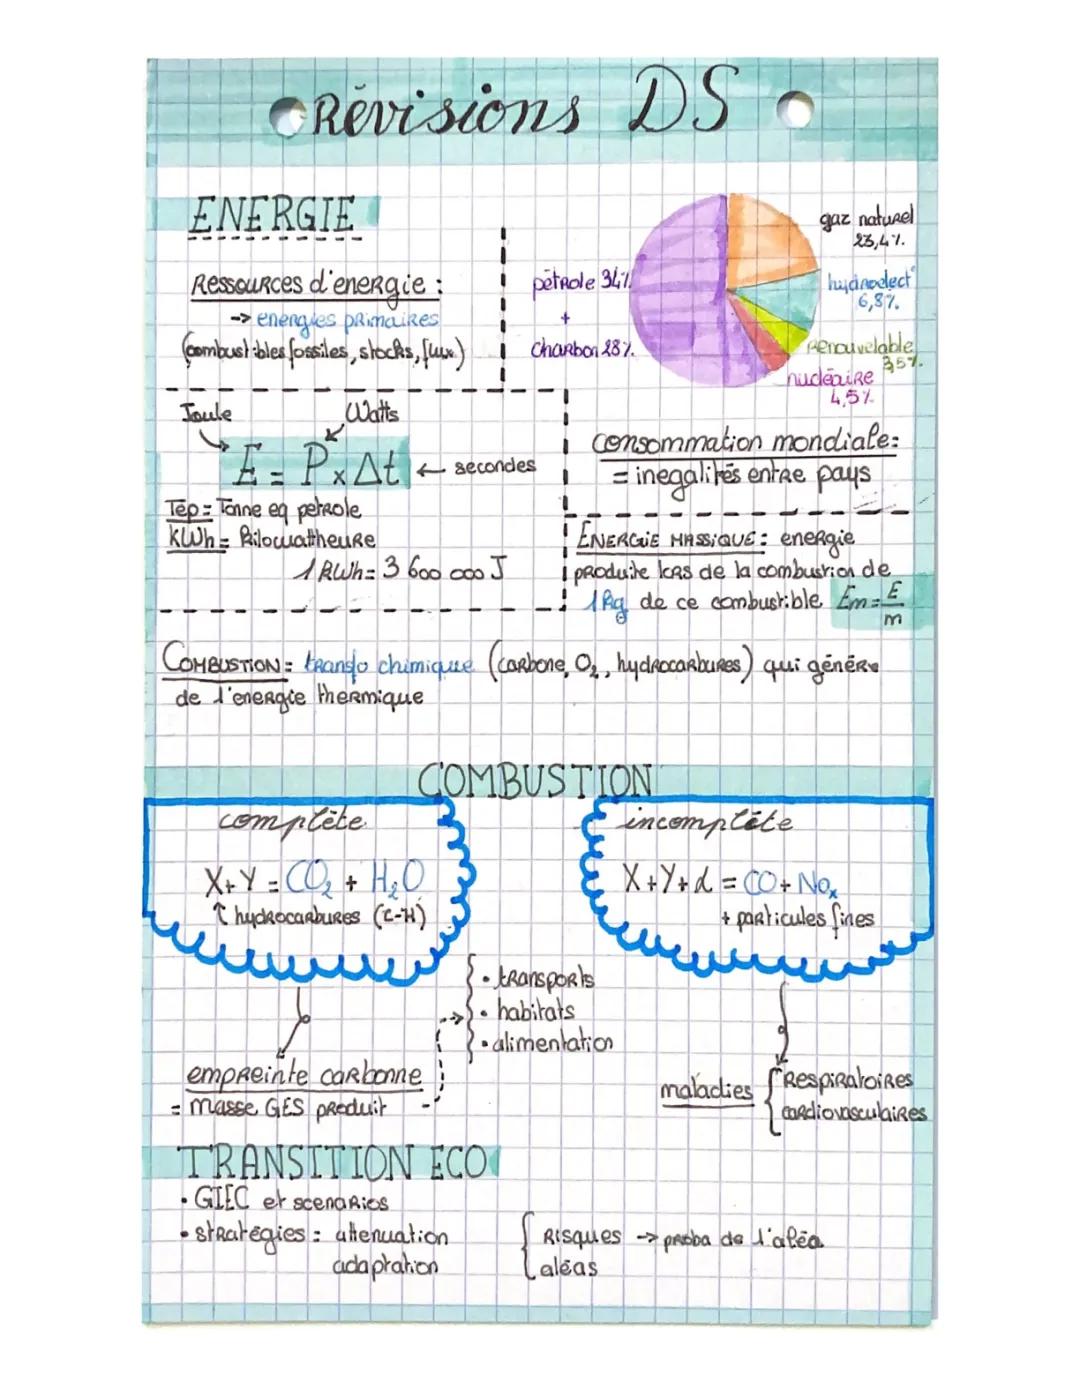 Révisions DS
ENERGIE
Ressources d'energie :
-> energies primaires
(combustibles fossiles, stocks, flux)
pétrole 34%
+
charbon 28%
gaz naturel
23,4%
hydroelect°
6,8%
Renouvelable
3,5%
nucléaire
4,5%
Joule
Watts
E = P x Δt ← secondes
Tep = Tonne eq petrole
kWh = Kilowattheure
1 kWh = 3 600 000 J
consommation mondiale :
= inegalités entre pays
ENERGIE MASSIQUE : energie
produite lors de la combustion de
1 kg de ce combustible Em = E/m
COMBUSTION = transfo chimique (carbone, O₂, hydrocarbures) qui génère
de l'energie thermique
COMBUSTION
complète
X+Y = CO₂ + H₂O
↑ hydrocarbures (C-H)
incomplète
X+Y+d = CO + Noₓ
+ particules fines
• transports
• habitats
• alimentation
empreinte carbonne
= masse GES produit
maladies { Respiratoires
cardiovasculaires
TRANSITION ECO
• GIEC et scenarios
• stratégies : attenuation
adaptation
{ Risques -> proba de l'aléa
aléas